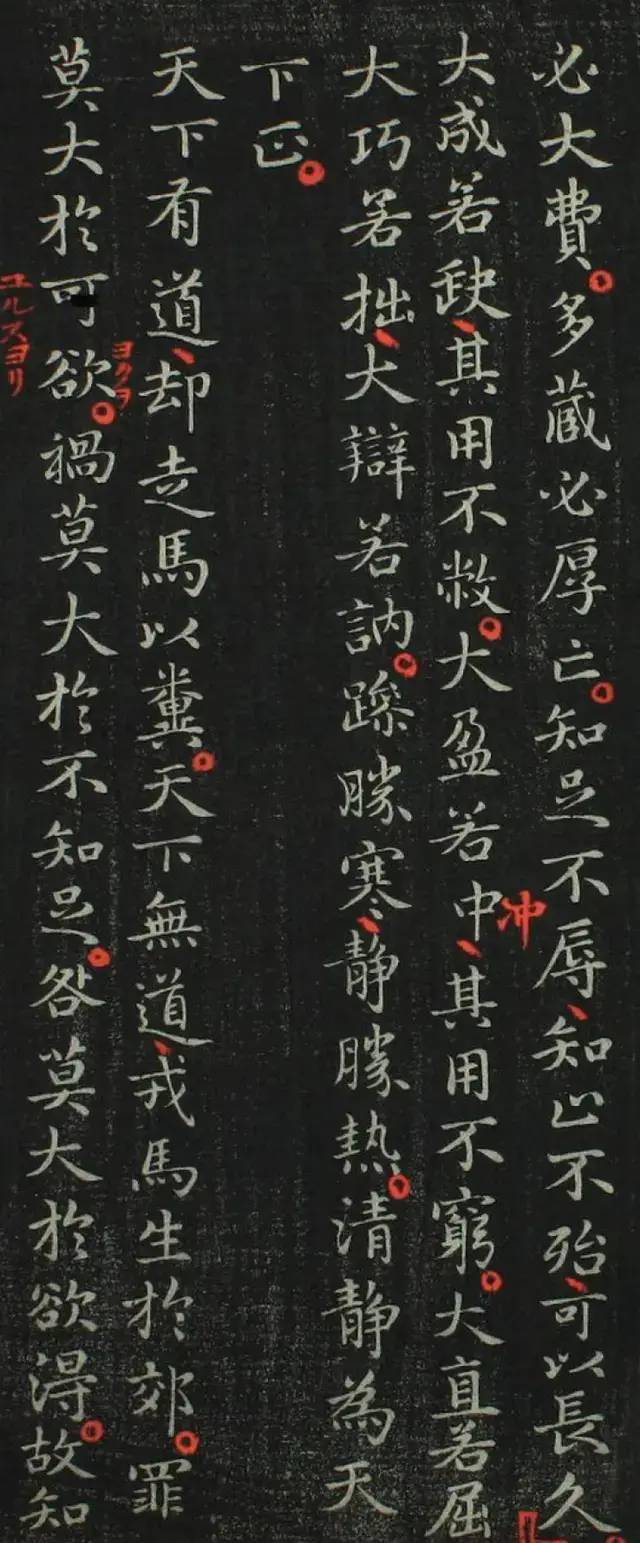 必大費多藏必厚亡知足不辱知止不殆可以長久
大成若缺其用不敝大盈若中其用不窮大直若屈
冲
大巧若拙大辯若訥躁勝寒靜勝熱清靜為天
下正
天下有道却走馬以糞天下無道戎馬生於郊罪
莫大於可欲禍莫大於不知足咎莫大於欲得故知
ヨクヲ
ユルスヨリ